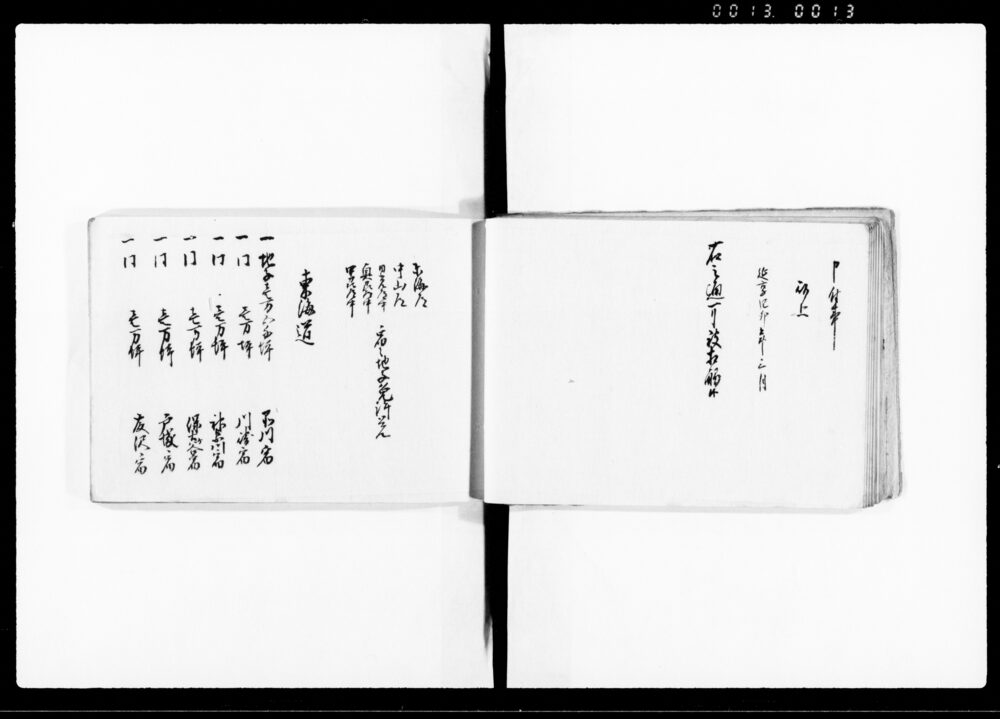 0013 0013
申付候事
以上
延享四卯年三月
右之通可被相触候
東海道
中山道
日光道中
奥州道中
甲州道中
宿々地子免許之分
東海道
一地子壱万五千坪 品川宿
一同 壱万坪 川崎宿
一同 壱万坪 神奈川宿
一同 壱万坪 保土ヶ谷宿
一同 壱万坪 戸塚宿
一同 壱万坪 藤沢宿